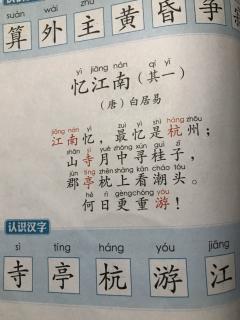 suàn wài zhǔ
算 外 主 黄 昏
yì jiāng nán qí yī
忆江南(其一)
(唐)白居易
jiāng nán yì zuì yì shì háng zhōu
江南忆,最忆是杭州;
shān sì yuè zhōng xún guì zǐ
山寺月中寻桂子,
jùn tíng zhěn shàng kàn cháo tóu
郡亭枕上看潮头。
hé rì gèng chóng yóu
何日更重游!
认识汉字
sì tíng háng yóu jiāng
寺 亭 杭 游 江